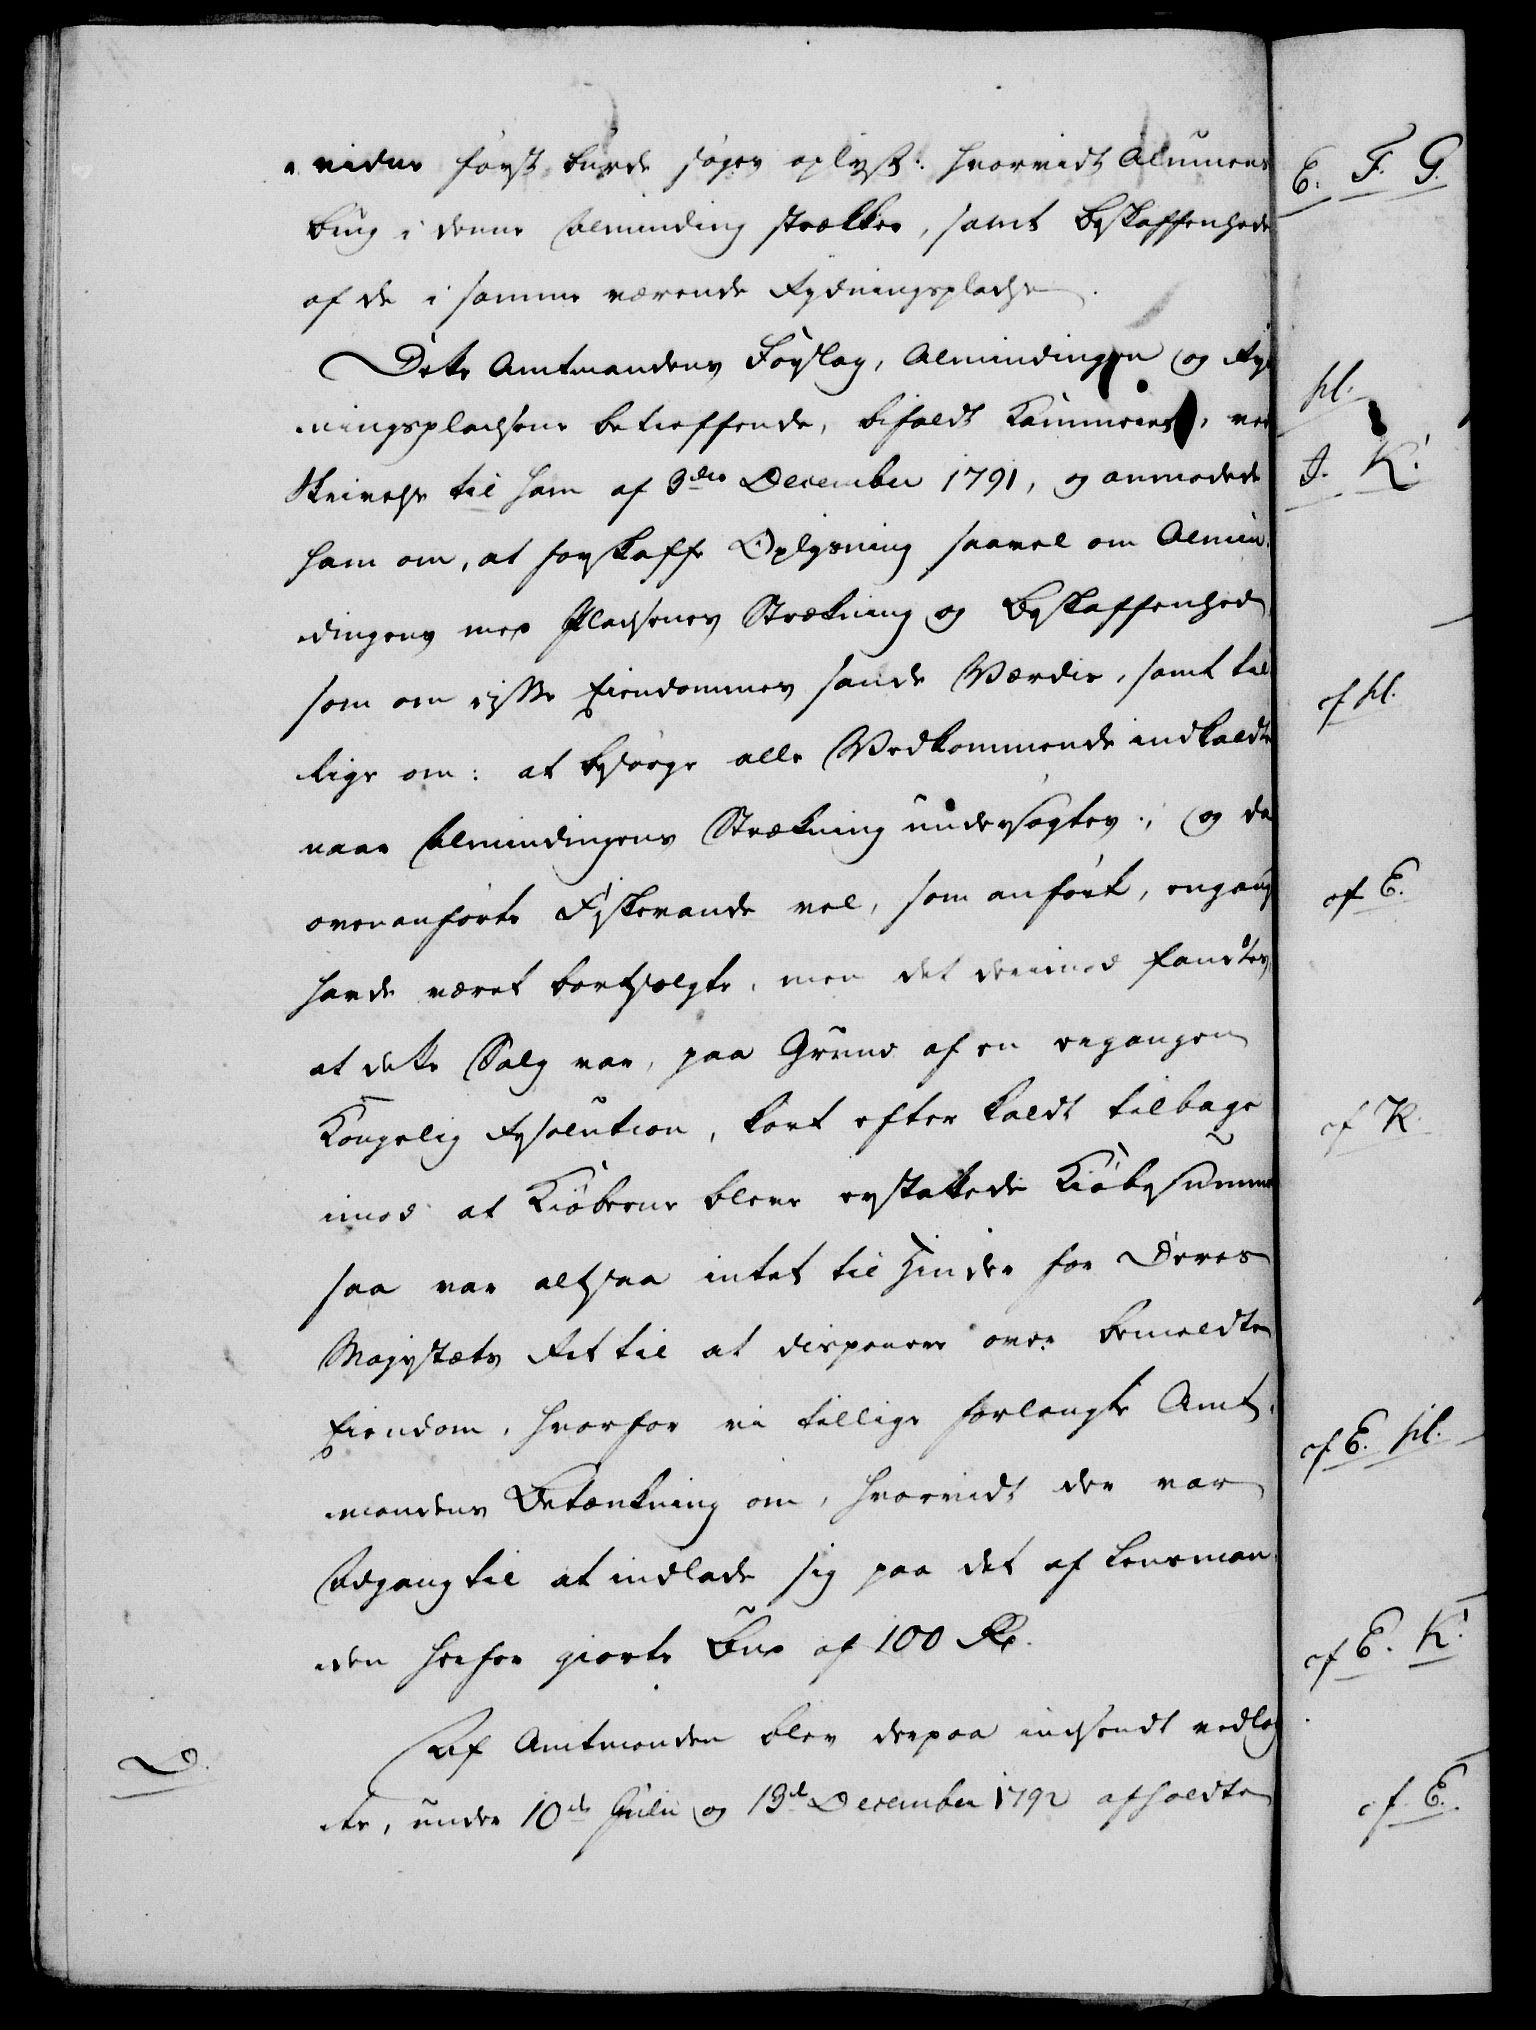 videre først burde søges oplyst: hvorvidt Almuens
Brug i denne Alminding strækker, samt Beskaffenhede
af de i samme værende Rydningspladse.
Dette Amtmandens Forslag, Almindingen og Ryd
ningspladsene betreffende, bifaldt Kammeret, ved
Skrivelse til ham af 3die December 1791, og anmodede
ham om, at forskaffe Oplysning saavel om Almin
dingens med Pladsenes Strækning og Beskaffenhed
som om disse Eiendommes sande Værdie, samt til
lige om: at besørge alle Vedkommende indkaldte
naar Almindingens Strækning undersøgtes; og da
ovenanførte Fiskevande vel, som anført, engang
havde været bortsolgte, men det derimod fandtes
at dette Salg var, paa Grund af en ergangen
Kongelig Resolution, kort efter kaldt tilbage
imod at Kiøberne bleve erstattede Kiøbesumme
saa var altsaa intet til Hinder for Deres
Majestæts Ret til at disponere over bemeldte
Eiendom, hvorfor vi tillige forlangte Amt
mandens Betænkning om, hvorvidt der var
Adgang til at indlade sig paa det af Lensman
den herfor giorte Bud af 100 Rd.
Af Amtmanden blev derpaa indsendt vedlag
D.
te, under 10de Julii og 13de December 1792 afholdte
E. F. G.
H.
J. K.
cf H.
cf E.
cf K.
cf E. H.
cf E. K.
cf E.